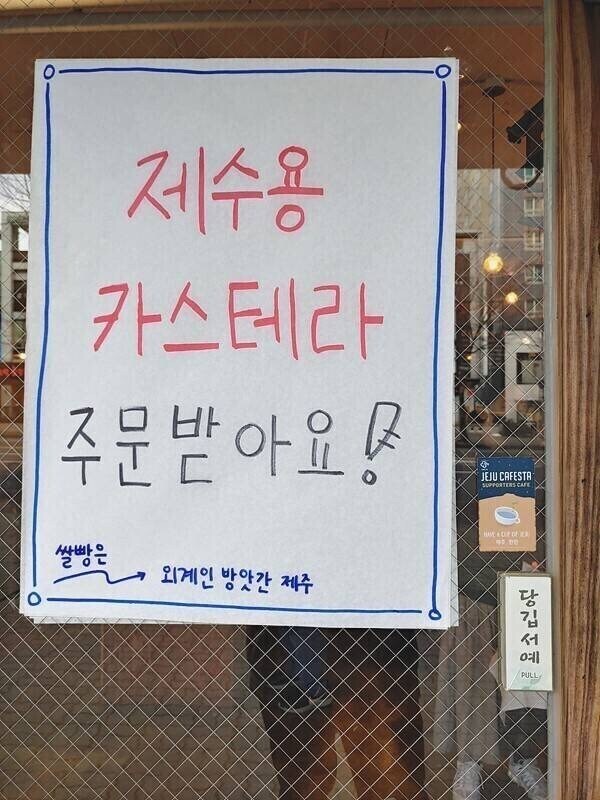 제수용
카스테라
주문받아요!
쌀빵은
외계인 방앗간 제주
JEJU CAFESTA
SUPPORTERS CAFE
HAVE A CUP OF JEJU
당깁서예
PULL